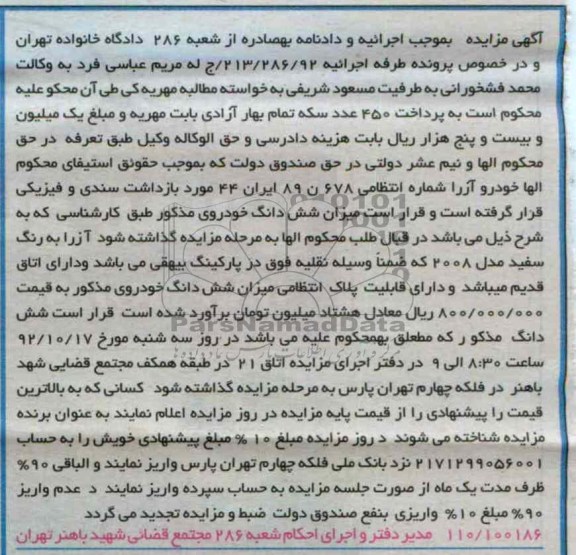 آگهی مزایده بموجب اجرائیه و دادنامه بهصادره از شعبه ۲۸۶ دادگاه خانواده تهران
و در خصوص پرونده طرفه اجرائیه ۲۱۳/۲۸۶/۹۲/ج له مریم عباسی فرد به وکالت
محمد فشخورانی به طرفیت مسعود شریفی به خواسته مطالبه مهریه کی طی آن محکو علیه
محکوم است به پرداخت ۴۵۰ عدد سکه تمام بهار آزادی بابت مهریه و مبلغ یک میلیون
و بیست و پنج هزار ریال بابت هزینه دادرسی و حق الوکاله وکیل طبق تعرفه در حق
محکوم الها و نیم عشر دولتی در حق صندوق دولت که بموجب حقوئق استیفای محکوم
الها خودرو آزرا شماره انتظامی ۶۷۸ ن ۸۹ ایران ۴۴ مورد بازداشت سندی و فیزیکی
قرار گرفته است و قرار است میزان شش دانگ خودروی مذکور طبق کارشناسی که به
شرح ذیل می باشد در قبال طلب محکوم الها به مرحله مزایده گذاشته شود آزرا به رنگ
سفید مدل ۲۰۰۸ که ضمناً وسیله نقلیه فوق در پارکینگ بیهقی می باشد ودارای اتاق
قدیم میباشد و دارای قابلیت پلاک انتظامی میزان شش دانگ خودروی مذکور به قیمت
۸۰۰/۰۰۰/۰۰۰ ریال معادل هشتاد میلیون تومان برآورد شده است قرار است شش
ParsNamadData
دانگ مذکو ر که مطعلق بهمحکوم علیه می باشد در روز سه شنبه مورخ ۹۲/۱۰/۱۷
ساعت ۸:۳۰ الی ۹ در دفتر اجرای مزایده اتاق ۲۱ در طبقه همکف مجتمع قضایی شهد
باهنر در فلکه چهارم تهران پارس به مرحله مزایده گذاشته شود کسانی که به بالاترین
قیمت را پیشنهادی را از قیمت پایه مزایده در روز مزایده اعلام نمایند به عنوان برنده
مزایده شناخته می شوند د روز مزایده مبلغ ۱۰ % مبلغ پیشنهادی خویش را به حساب
۲۱۷۱۲۹۹۰۵۶۰۰۱ نزد بانک ملی فلکه چهارم تهران پارس واریز نمایند و الباقی ۹۰%
ظرف مدت یک ماه از صورت جلسه مزایده به حساب سپرده واریز نمایند د عدم واریز
۹۰% مبلغ ۱۰% واریزی بنفع صندوق دولت ضبط و مزایده تجدید می گردد
۱۱۰/۱۰۰۱۸۶ مدیر دفتر و اجرای احکام شعبه ۲۸۶ مجتمع قضائی شهید باهنر تهران